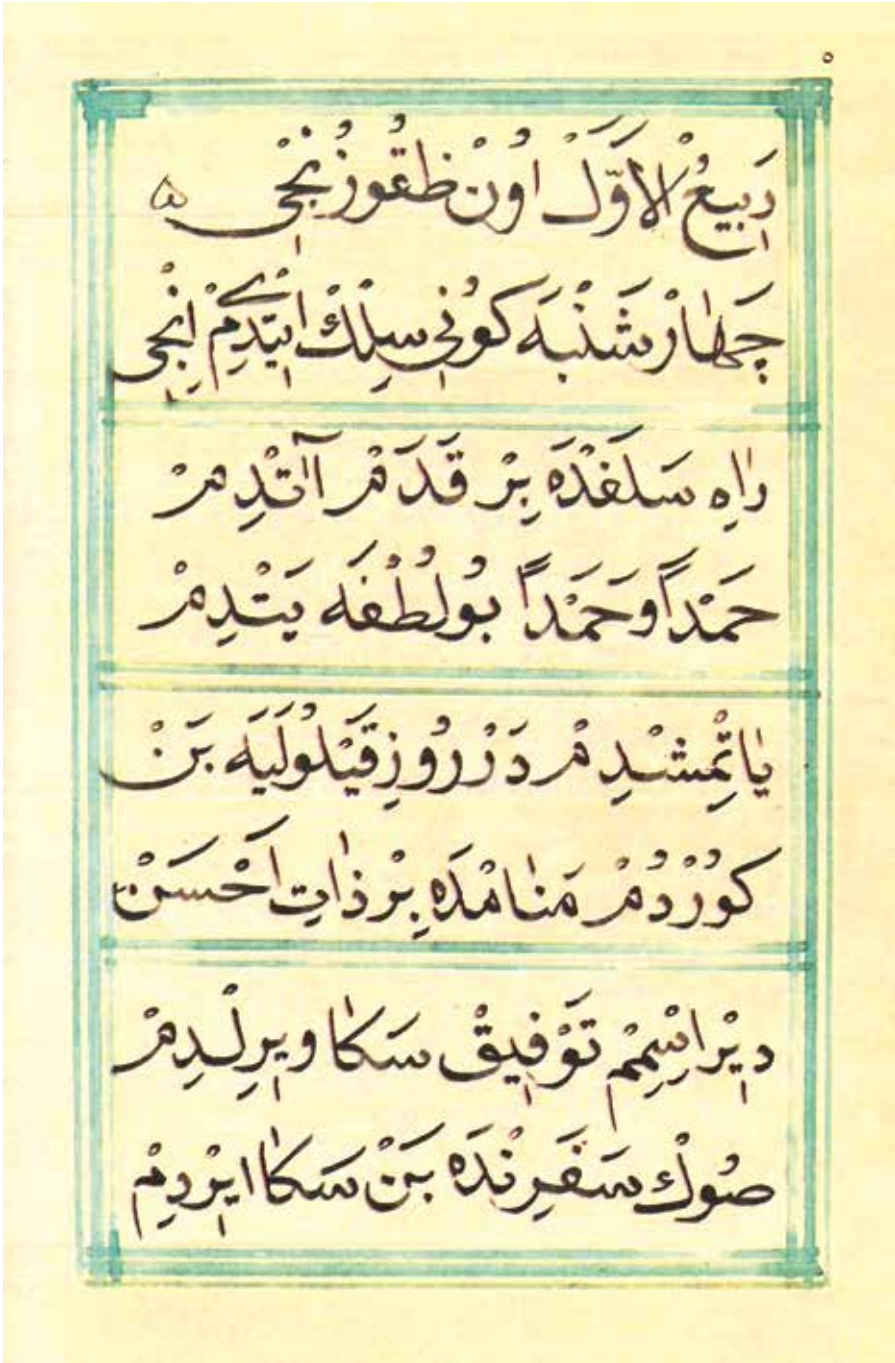 ٥
رَبِيعُ الْاَوَّلْ اُونْ طُقُوزُنْجِى ۵
چَهَارْشَنْبَه كُونِى سِلْكْ اِيتْدِمْ اِنْجِى
رَاهِ سَلَفْدَه بِرْ قَدَمْ آتْدِمْ
حَمْدًا وَحَمْدًا بُو لُطْفَه يَتْدِمْ
يَاتْمِشْدِمْ دَرْ رُوزِ قَيْلُولَيَه بَنْ
كُورْدُمْ مَنَامْدَه بِرْ ذَاتِ اَحْسَنْ
دِيْر اِسِمِمْ تَوْفِيقْ سَكَا وِيرِلْدِمْ
صُوكْ سَفَرِنْدَه بَنْ سَكَا اِيرْدِمْ